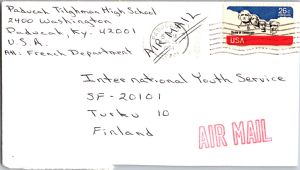 Paducah Tilghman High School
2400 Washington
Paducah, Ky. 42001
U.S.A.
Att: French Department
AIR MAIL
26c
USA
International Youth Service
SF-20101
Turku 10
Finland
AIR MAIL